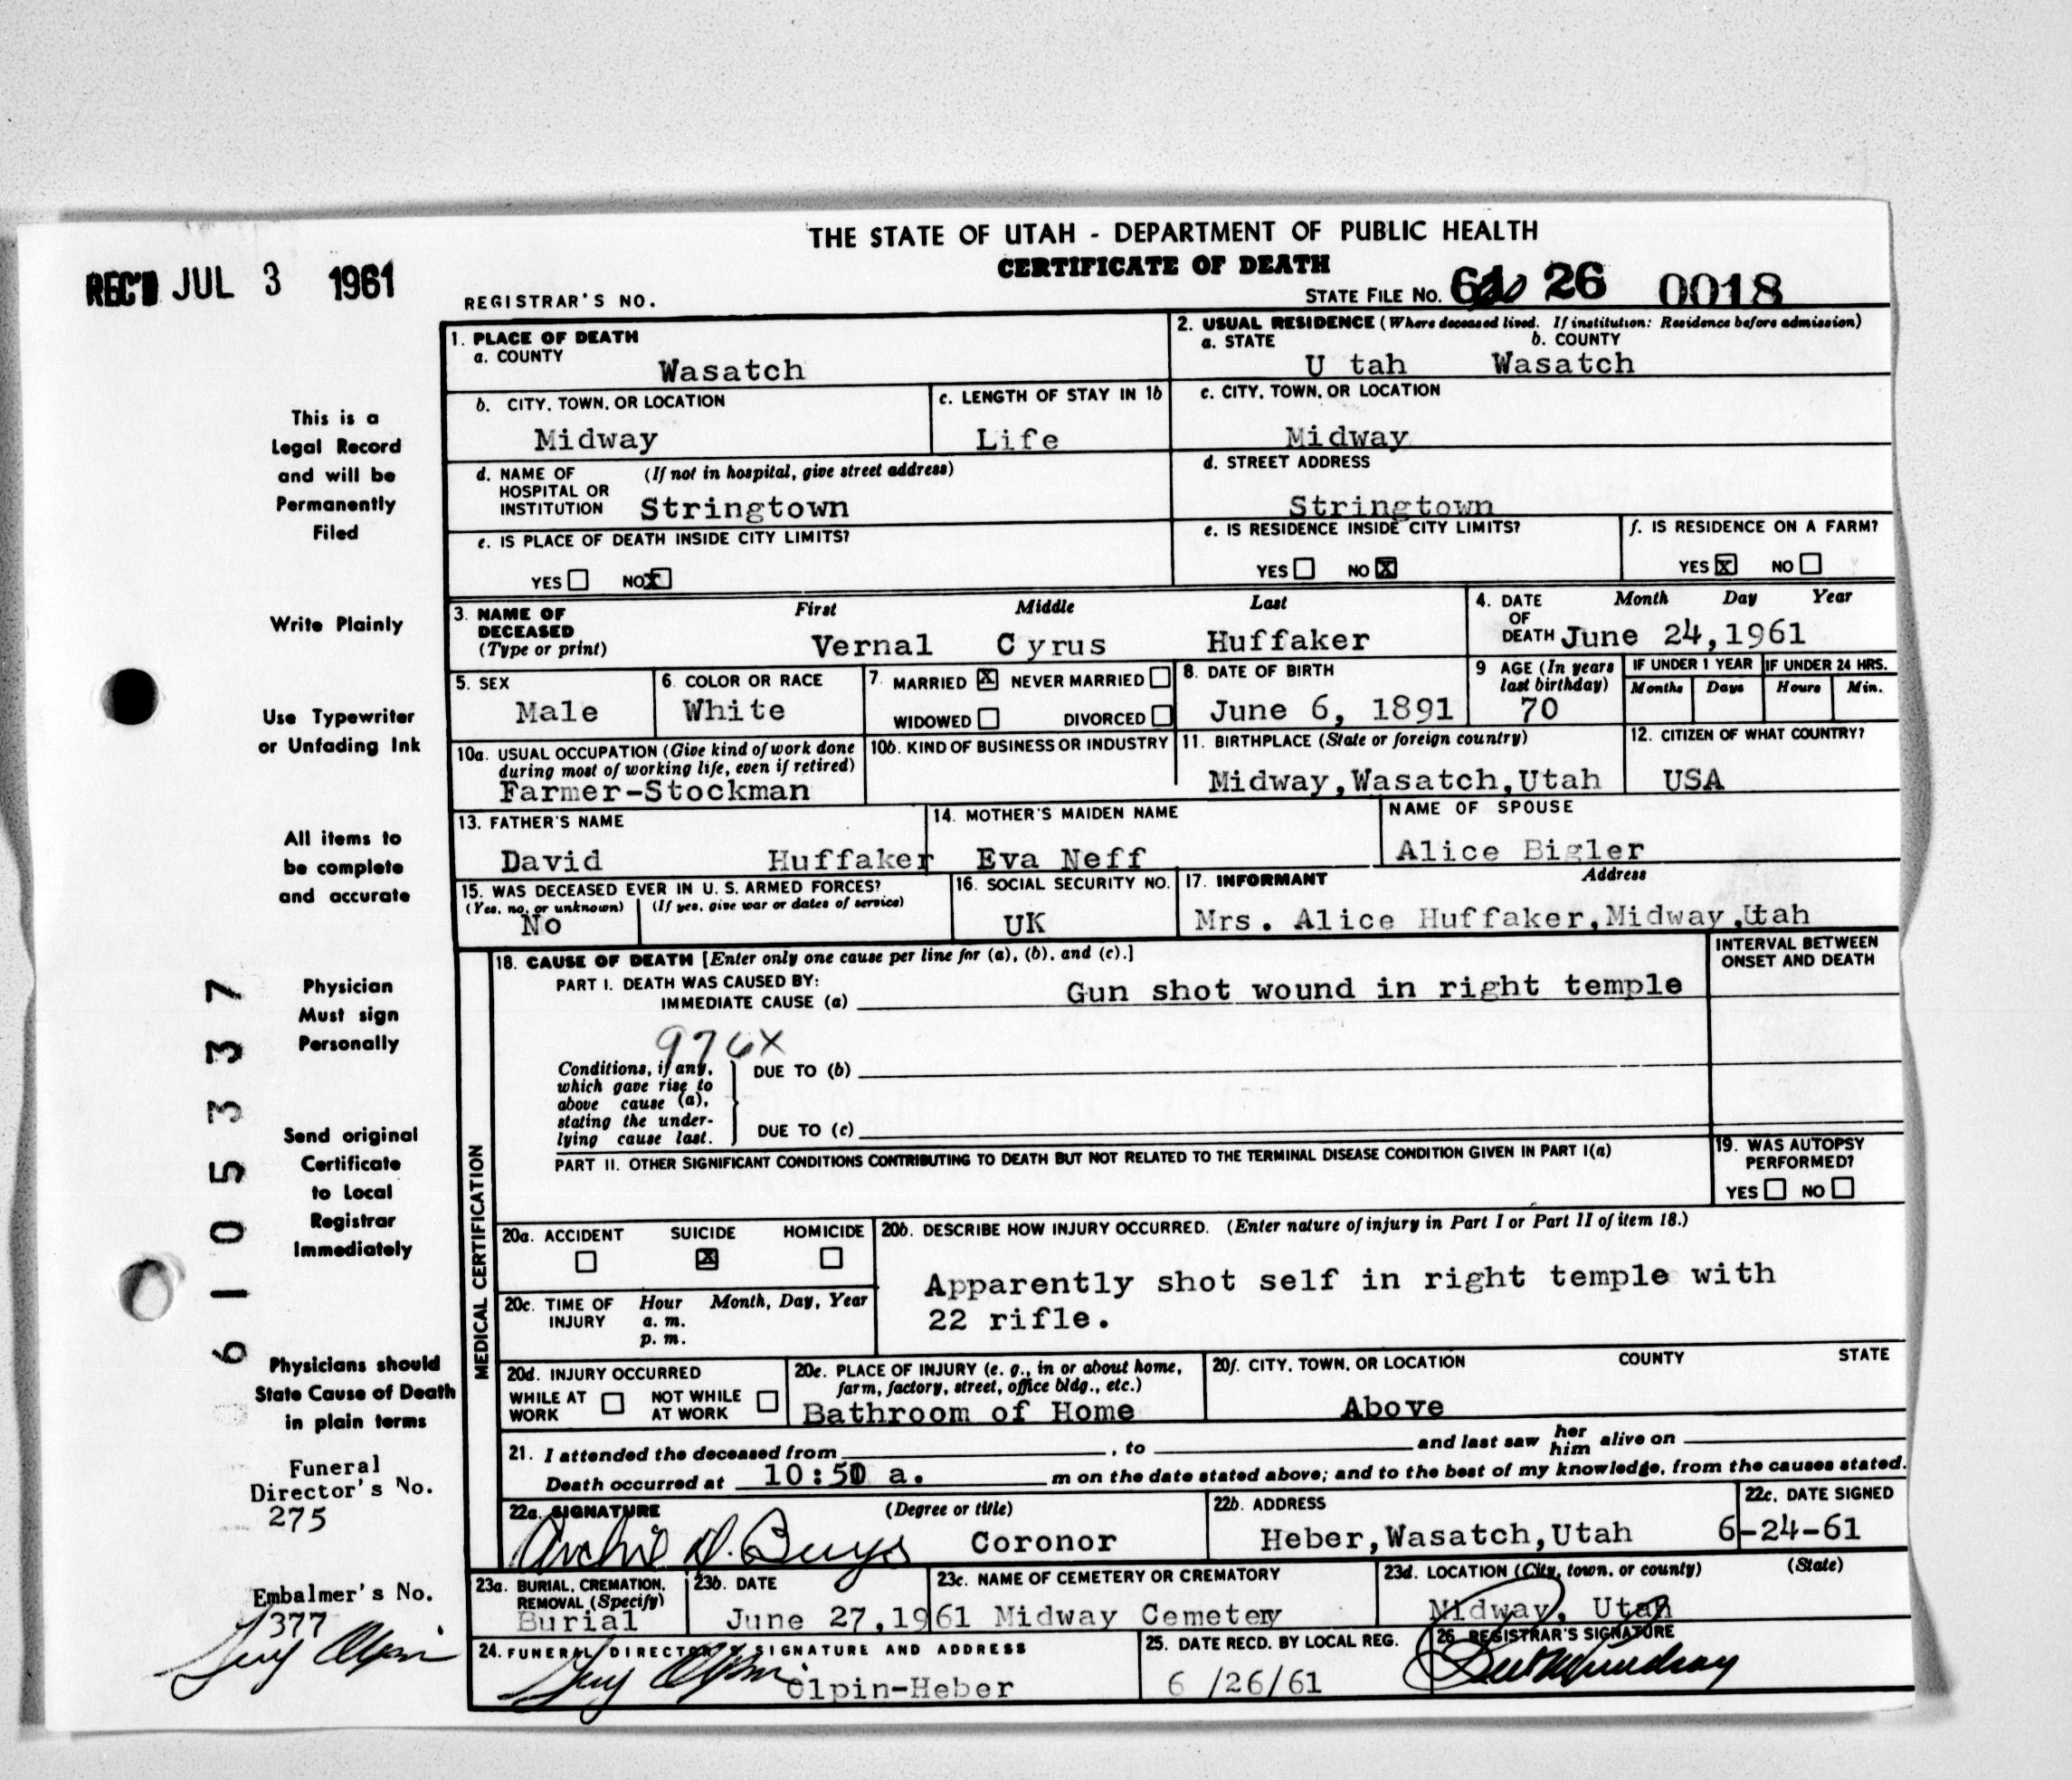 THE STATE OF UTAH - DEPARTMENT OF PUBLIC HEALTH
CERTIFICATE OF DEATH
REC'D JUL 3 1961
REGISTRAR'S NO.
STATE FILE NO. 61 26 0018
1. PLACE OF DEATH
a. COUNTY
Wasatch
2. USUAL RESIDENCE (Where deceased lived. If institution: Residence before admission)
a. STATE b. COUNTY
U tah Wasatch
b. CITY, TOWN, OR LOCATION
Midway
c. LENGTH OF STAY IN 1b
Life
c. CITY, TOWN, OR LOCATION
Midway
d. NAME OF (If not in hospital, give street address)
HOSPITAL OR
INSTITUTION Stringtown
d. STREET ADDRESS
Stringtown
e. IS PLACE OF DEATH INSIDE CITY LIMITS?
YES NO X
e. IS RESIDENCE INSIDE CITY LIMITS?
YES NO X
f. IS RESIDENCE ON A FARM?
YES X NO
3. NAME OF First Middle Last
DECEASED
(Type or print) Vernal Cyrus Huffaker
4. DATE Month Day Year
OF
DEATH June 24,1961
5. SEX
Male
6. COLOR OR RACE
White
7. MARRIED X NEVER MARRIED
WIDOWED DIVORCED
8. DATE OF BIRTH
June 6, 1891
9 AGE (In years
last birthday)
70
IF UNDER 1 YEAR IF UNDER 24 HRS.
Months Days Hours Min.
10a. USUAL OCCUPATION (Give kind of work done
during most of working life, even if retired)
Farmer-Stockman
10b. KIND OF BUSINESS OR INDUSTRY
11. BIRTHPLACE (State or foreign country)
Midway,Wasatch,Utah
12. CITIZEN OF WHAT COUNTRY?
USA
13. FATHER'S NAME
David Huffaker
14. MOTHER'S MAIDEN NAME
Eva Neff
NAME OF SPOUSE
Alice Bigler
15. WAS DECEASED EVER IN U. S. ARMED FORCES?
(Yes, no, or unknown) (If yes, give war or dates of service)
No
16. SOCIAL SECURITY NO.
UK
17. INFORMANT Address
Mrs. Alice Huffaker,Midway,Utah
MEDICAL CERTIFICATION
18. CAUSE OF DEATH [Enter only one cause per line for (a), (b), and (c).]
PART I. DEATH WAS CAUSED BY:
IMMEDIATE CAUSE (a) Gun shot wound in right temple
INTERVAL BETWEEN
ONSET AND DEATH
976X
Conditions, if any,
which gave rise to
above cause (a),
stating the under-
lying cause last.
DUE TO (b)
DUE TO (c)
PART II. OTHER SIGNIFICANT CONDITIONS CONTRIBUTING TO DEATH BUT NOT RELATED TO THE TERMINAL DISEASE CONDITION GIVEN IN PART I(a)
19. WAS AUTOPSY
PERFORMED?
YES NO
20a. ACCIDENT SUICIDE HOMICIDE
X
20b. DESCRIBE HOW INJURY OCCURRED. (Enter nature of injury in Part I or Part II of item 18.)
Apparently shot self in right temple with
22 rifle.
20c. TIME OF Hour Month, Day, Year
INJURY a. m.
p. m.
20d. INJURY OCCURRED
WHILE AT NOT WHILE
WORK AT WORK
20e. PLACE OF INJURY (e. g., in or about home,
farm, factory, street, office bldg., etc.)
Bathroom of Home
20f. CITY, TOWN, OR LOCATION COUNTY STATE
Above
21. I attended the deceased from , to and last saw her him alive on
Death occurred at 10:50 a. m on the date stated above; and to the best of my knowledge, from the causes stated.
22a. SIGNATURE (Degree or title)
Archie D. Buys Coronor
22b. ADDRESS
Heber,Wasatch,Utah
22c. DATE SIGNED
6-24-61
23a. BURIAL, CREMATION,
REMOVAL (Specify)
Burial
23b. DATE
June 27,1961
23c. NAME OF CEMETERY OR CREMATORY
Midway Cemetery
23d. LOCATION (City, town, or county) (State)
Midway, Utah
24. FUNERAL DIRECTOR'S SIGNATURE AND ADDRESS
Guy Olpin Olpin-Heber
25. DATE RECD. BY LOCAL REG.
6 /26/61
26. REGISTRAR'S SIGNATURE
This is a
Legal Record
and will be
Permanently
Filed
Write Plainly
Use Typewriter
or Unfading Ink
All items to
be complete
and accurate
Physician
Must sign
Personally
Send original
Certificate
to Local
Registrar
Immediately
Physicians should
State Cause of Death
in plain terms
Funeral
Director's No.
275
Embalmer's No.
377
Guy Olpin
6105337